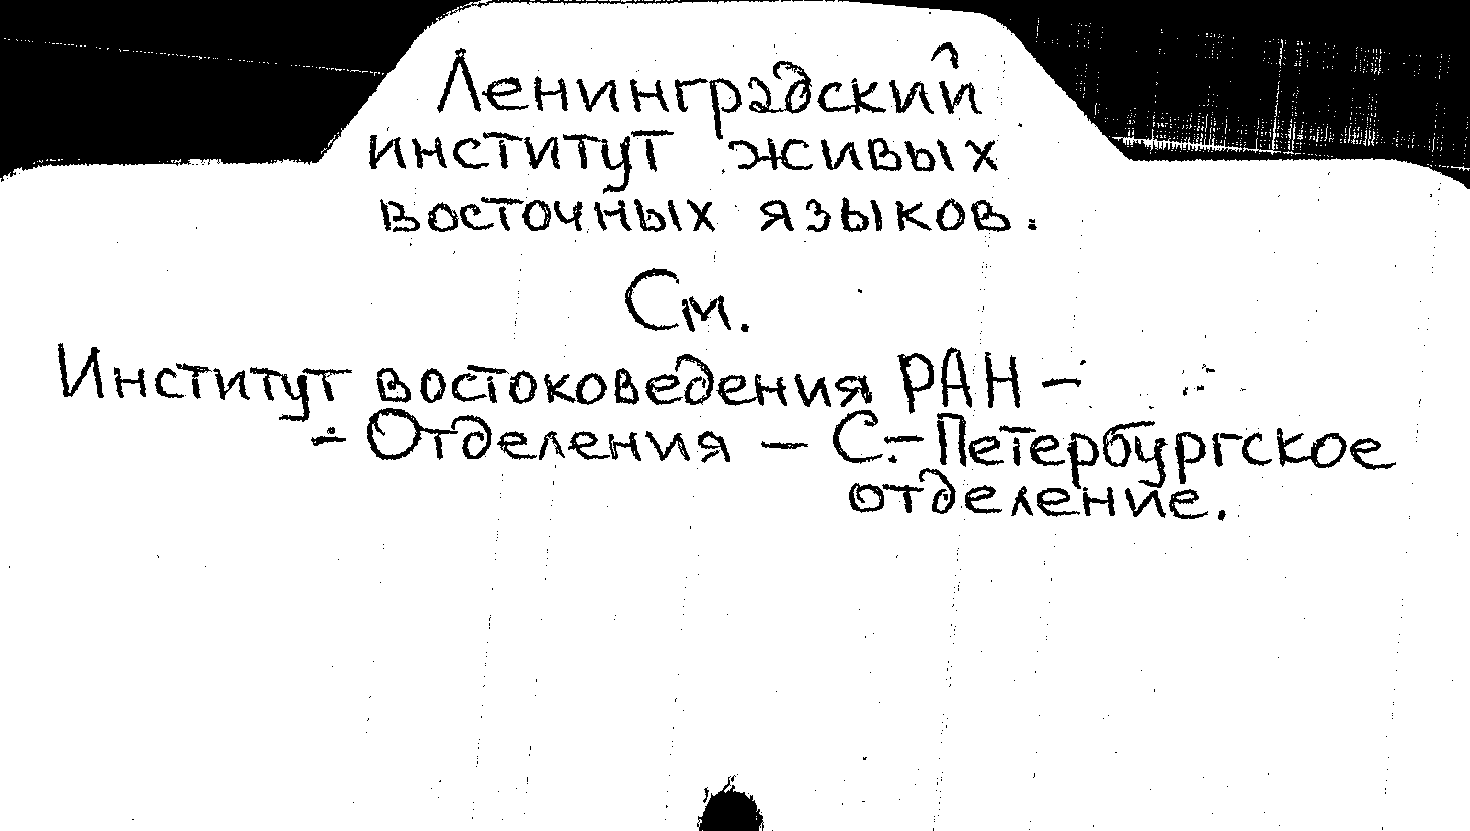 Ленинградский
институт живых
восточных языков.
См.
Институт востоковедения РАН -
- Отделения - С.-Петербургское
отделение.